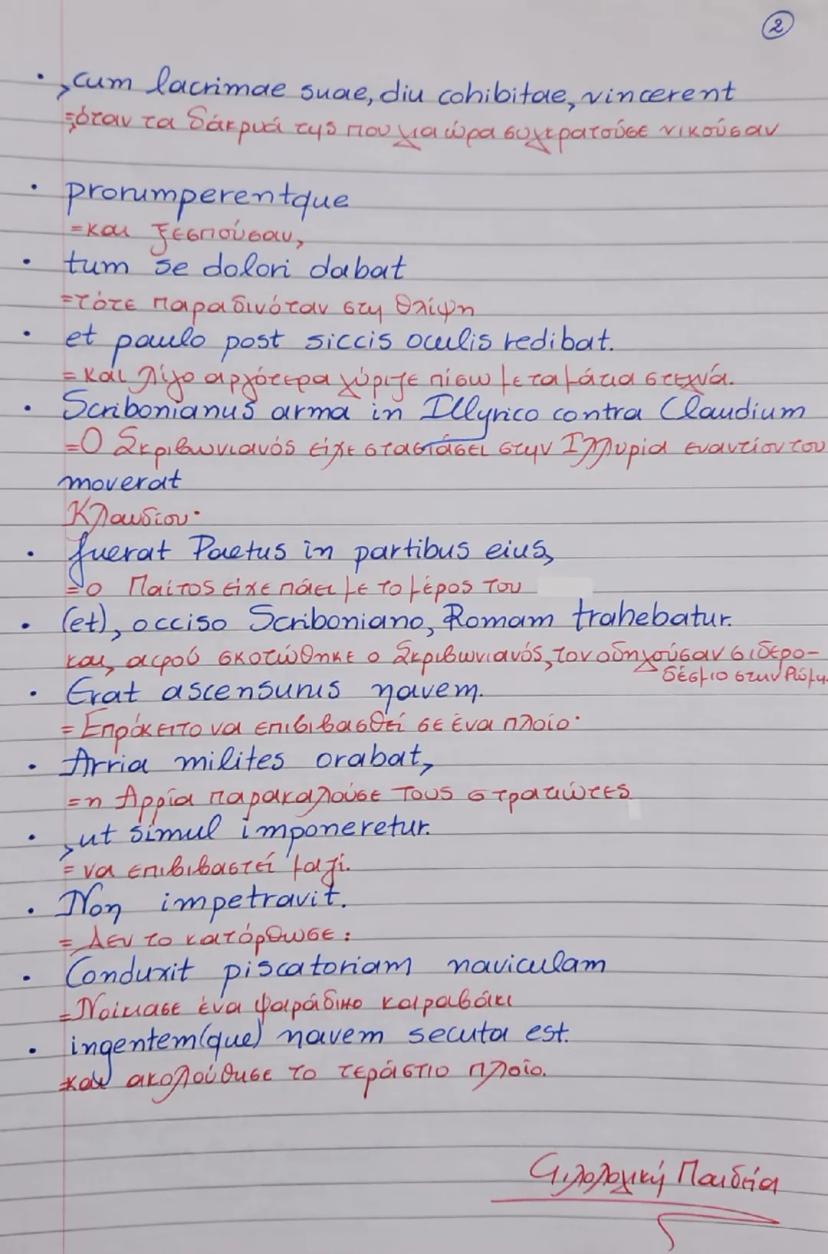 2
• ,cum lacrimae suae, diu cohibitae, vincerent
=όταν τα δάκρυά της που για ώρα συγκρατούσε νικούσαν
• prorumperentque
=και ξεσπούσαν,
• tum se dolori dabat
=τότε παραδινόταν στη θλίψη
• et paulo post siccis oculis redibat.
=και λίγο αργότερα γύριζε πίσω με τα μάτια στεγνά.
• Scribonianus arma in Illyrico contra Claudium
=Ο Σκριβωνιανός είχε στασιάσει στην Ιλλυρία εναντίον του
moverat
Κλαυδίου·
• fuerat Paetus in partibus eius,
=ο Παίτος είχε πάει με το μέρος του
• (et), occiso Scriboniano, Romam trahebatur.
και, αφού σκοτώθηκε ο Σκριβωνιανός, τον οδηγούσαν σιδερο-
δέσμιο στην Ρώμη.
• Erat ascensurus navem.
=Επρόκειτο να επιβιβασθεί σε ένα πλοίο·
• Arria milites orabat,
=η Αρρία παρακαλούσε τους στρατιώτες
• ,ut simul imponeretur.
=να επιβιβαστεί μαζί.
• Non impetravit.
=Δεν το κατόρθωσε:
• Conduxit piscatoriam naviculam
=Νοίκιασε ένα ψαράδικο καραβάκι
• ingentem(que) navem secuta est.
και ακολούθησε το τεράστιο πλοίο.
Φιλολογική Παιδεία